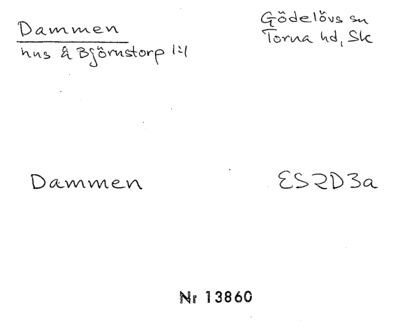 Dammen
hus å Björnstorp 1:1
Gödelövs sn
Torna hd, Sk
Dammen
ES2D3a
Nr 13860